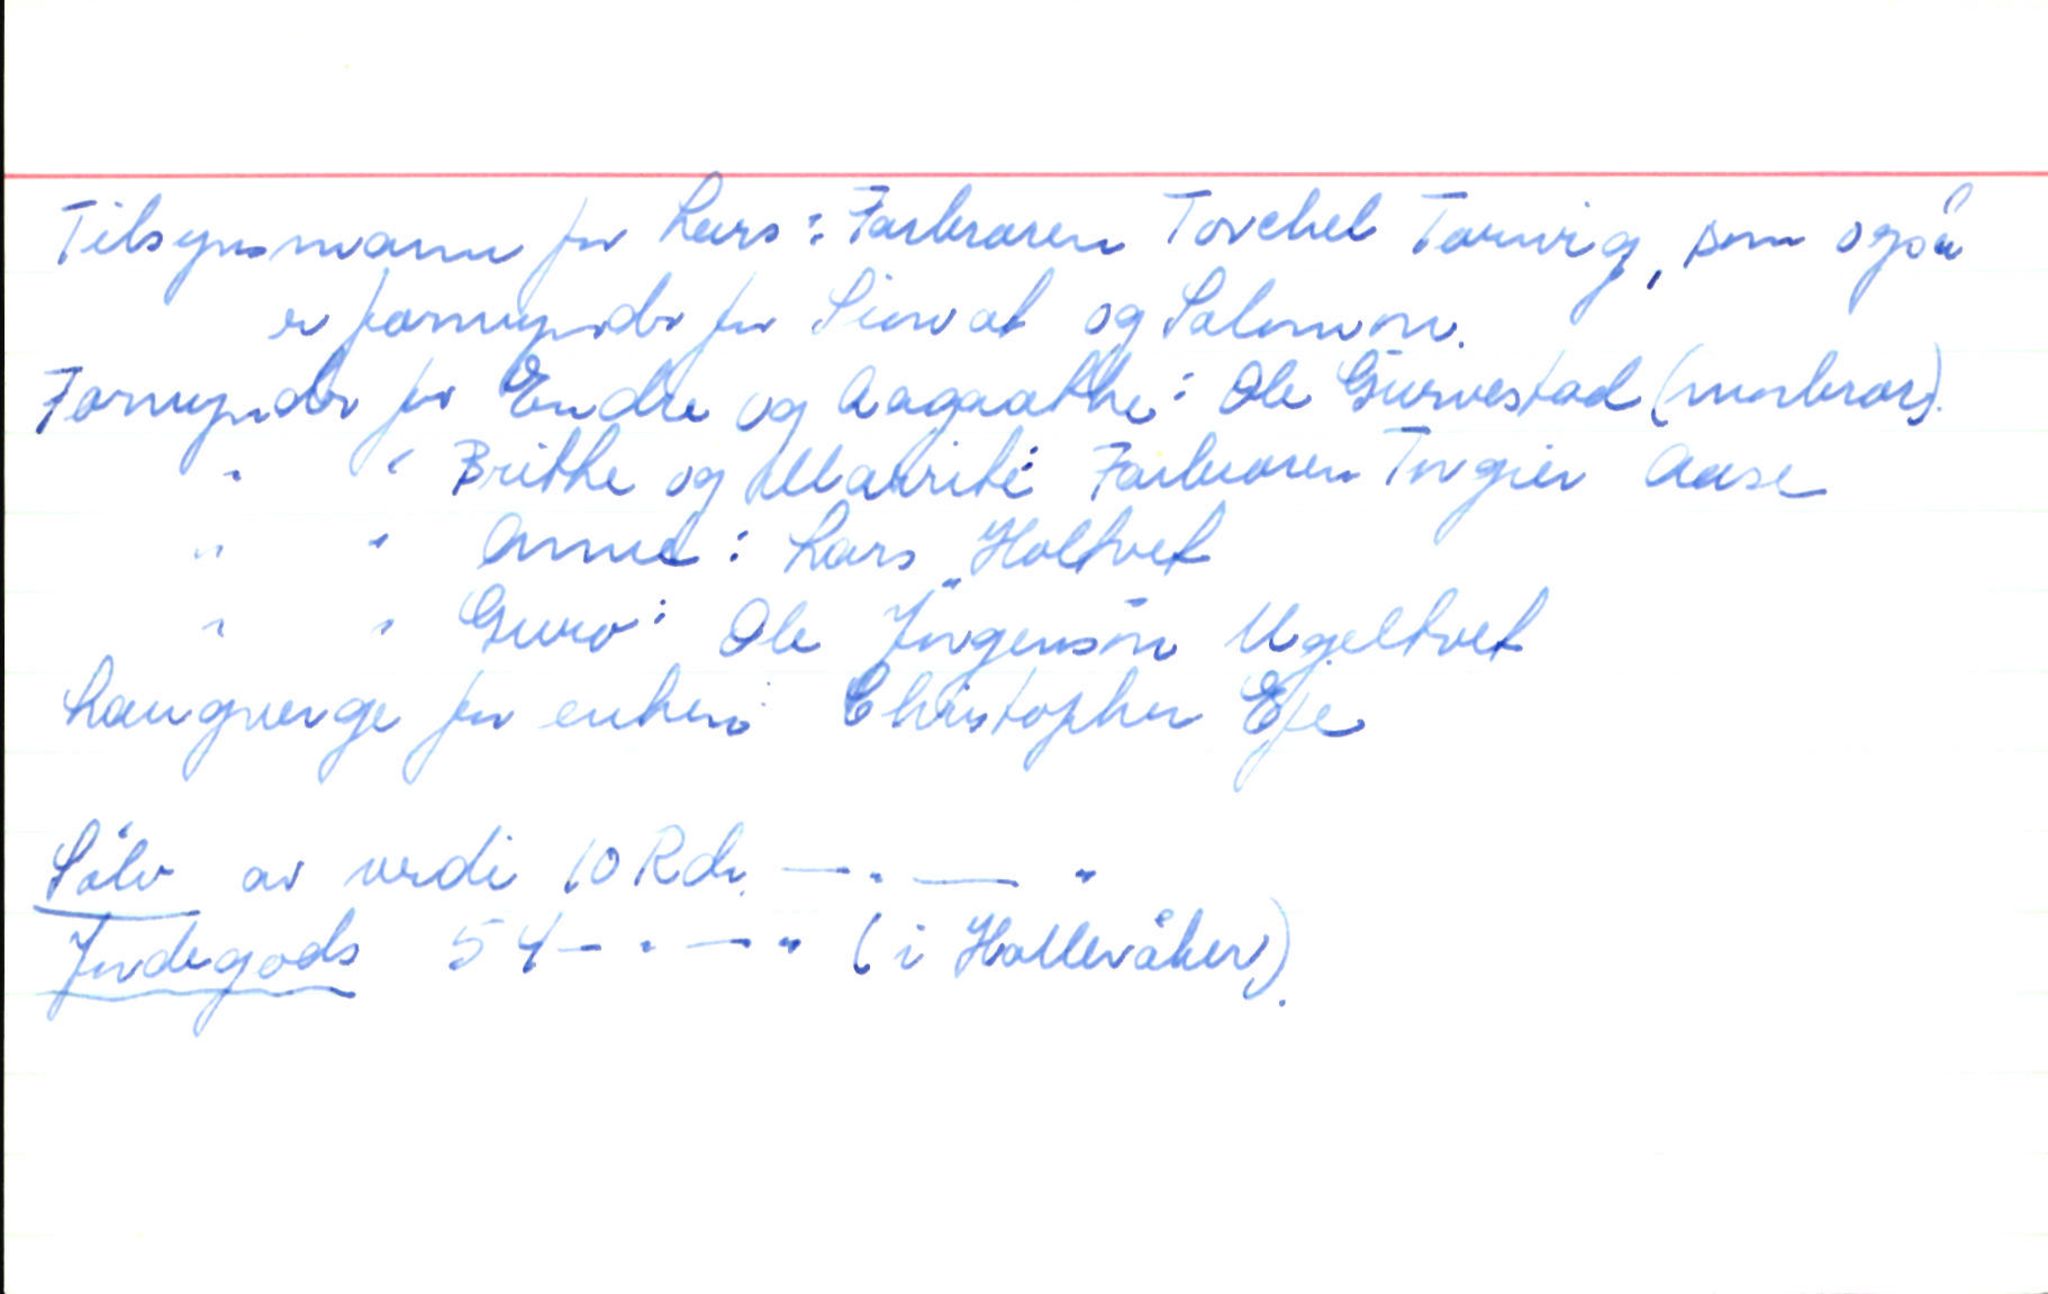 Tilsynsmann for Lars: Farbroren Torchel Tarvig, som også
er formynder for Siurat og Salomon.
Formynder for Endre og Aagaathe: Ole Gurvestad (morbror).
" " Brithe og Marrite: Farbroren Torgier Aase
" " Anne: Lars Holtvet
" " Guro: Ole Jörgensön Ugeltvet
Laugverge for enken: Christopher Eje
Sölv av verdi 10 Rdr. — . — "
Jordegods 54 — . — " (i Hallevåker).